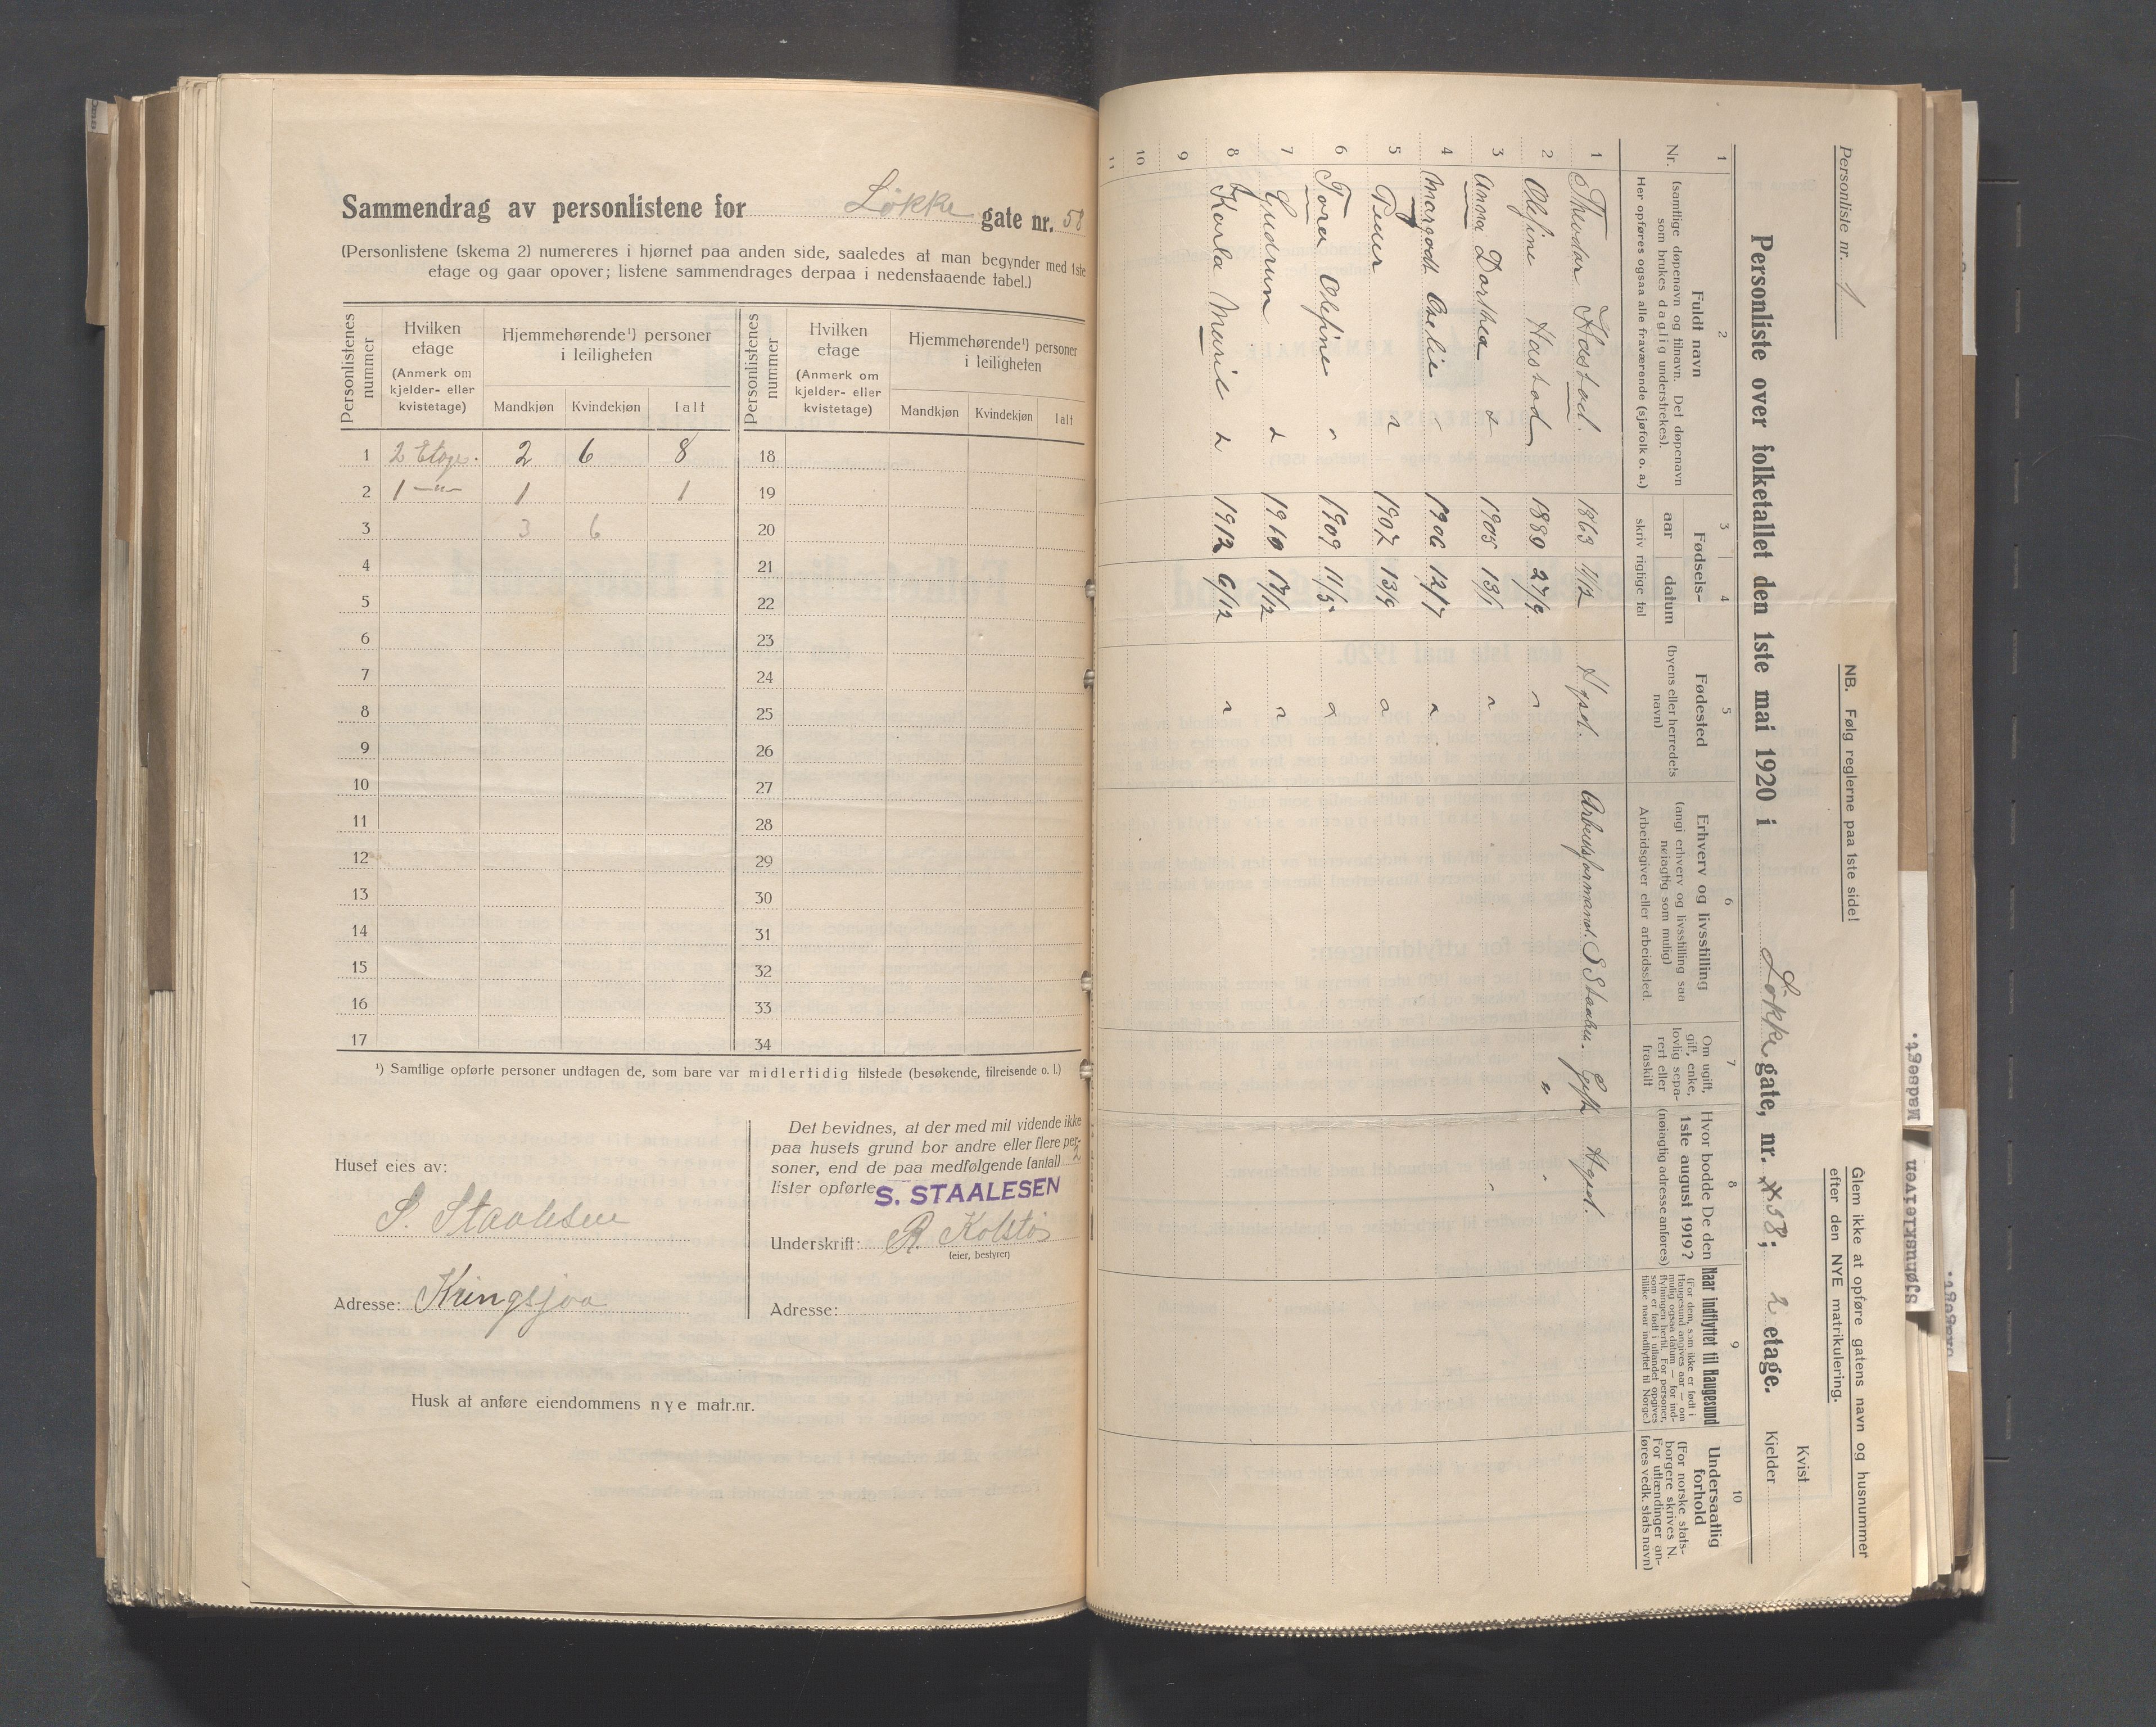 Sammendrag av personlistene for Løkke gate nr. 58
(Personlistene (skema 2) numereres i hjørnet paa anden side, saaledes at man begynder med 1ste
etage og gaar opover; listene sammendrages derpaa i nedenstaaende tabel.)
Personlistenes nummer
Hvilken etage (Anmerk om kjelder- eller kvistetage)
Hjemmehørende¹) personer i leiligheten
Mandkjøn Kvindekjøn Ialt
Personlistenes nummer
Hvilken etage (Anmerk om kjelder- eller kvistetage)
Hjemmehørende¹) personer i leiligheten
Mandkjøn Kvindekjøn Ialt
1 2 Etage. 2 6 8 18
2 1 —"— 1 1 19
3 3 6 20
4 21
5 22
6 23
7 24
8 25
9 26
10 27
11 28
12 29
13 30
14 31
15 32
16 33
17 34
¹) Samtlige opførte personer undtagen de, som bare var midlertidig tilstede (besøkende, tilreisende o. l.)
Huset eies av:
S. Staalesen
Adresse: Kringsjaa
Det bevidnes, at der med mit vidende ikke
paa husets grund bor andre eller flere per-
soner, end de paa medfølgende (antal) 2
lister opførte
S. STAALESEN
Underskrift: R. Kolstø
(eier, bestyrer)
Adresse:
Husk at anføre eiendommens nye matr.nr.
Personliste nr. 1
NB. Følg reglerne paa 1ste side!
Glem ikke at opføre gatens navn og husnummer
efter den NYE matrikulering.
Personliste over folketallet den 1ste mai 1920 i Løkke gate, nr. 58; 2 etage.
Kvist
Kjelder
1 2 3 4 5 6 7 8 9 10
Nr.
Fuldt navn
(samtlige døpenavn og tilnavn. Det døpenavn
som brukes daglig understrekes).
Her opføres ogsaa alle fraværende (sjøfolk o. a.)
Fødsels-
aar datum
skriv rigtige tal
Fødested
(byens eller herredets
navn)
Erhverv og livsstilling
(angi erhverv og livsstilling saa
nøiagtig som mulig)
Arbeidsgiver eller arbeidssted.
Om ugift,
gift, enke,
lovlig sepa-
rert eller
fraskilt
Hvor bodde De den
1ste august 1919?
(nøiagtig adresse anføres)
Naar indflyttet til Haugesund
(For dem, som ikke er født i
Haugesund angives aar — om
mulig ogsaa datum — for ind-
flytningen hertil. For personer,
som er født i utlandet opgives
tillike naar indflyttet til Norge.)
Undersaatlig
forhold
(For norske stats-
borgere skrives N.
For utlændinger an-
føres vedk. stats navn)
1 Theodor Hastad. 1863 11/12 Hgsd. Arbeidsformand. S Staalesen. Gift Hgsd.
2 Olefine Hastad 1880 27/9 " " "
3 Anna Dorthea " 1905 13/1 " "
4 Margodt Orelie " 1906 12/7 "
5 Peder " 1907 13/9 "
6 Tora Olefine " 1909 11/5 "
7 Gudrun " 1910 17/12 "
8 Karla Marie " 1912 6/12 "
9
10
11
Madsegt.
Sjønuskreiven